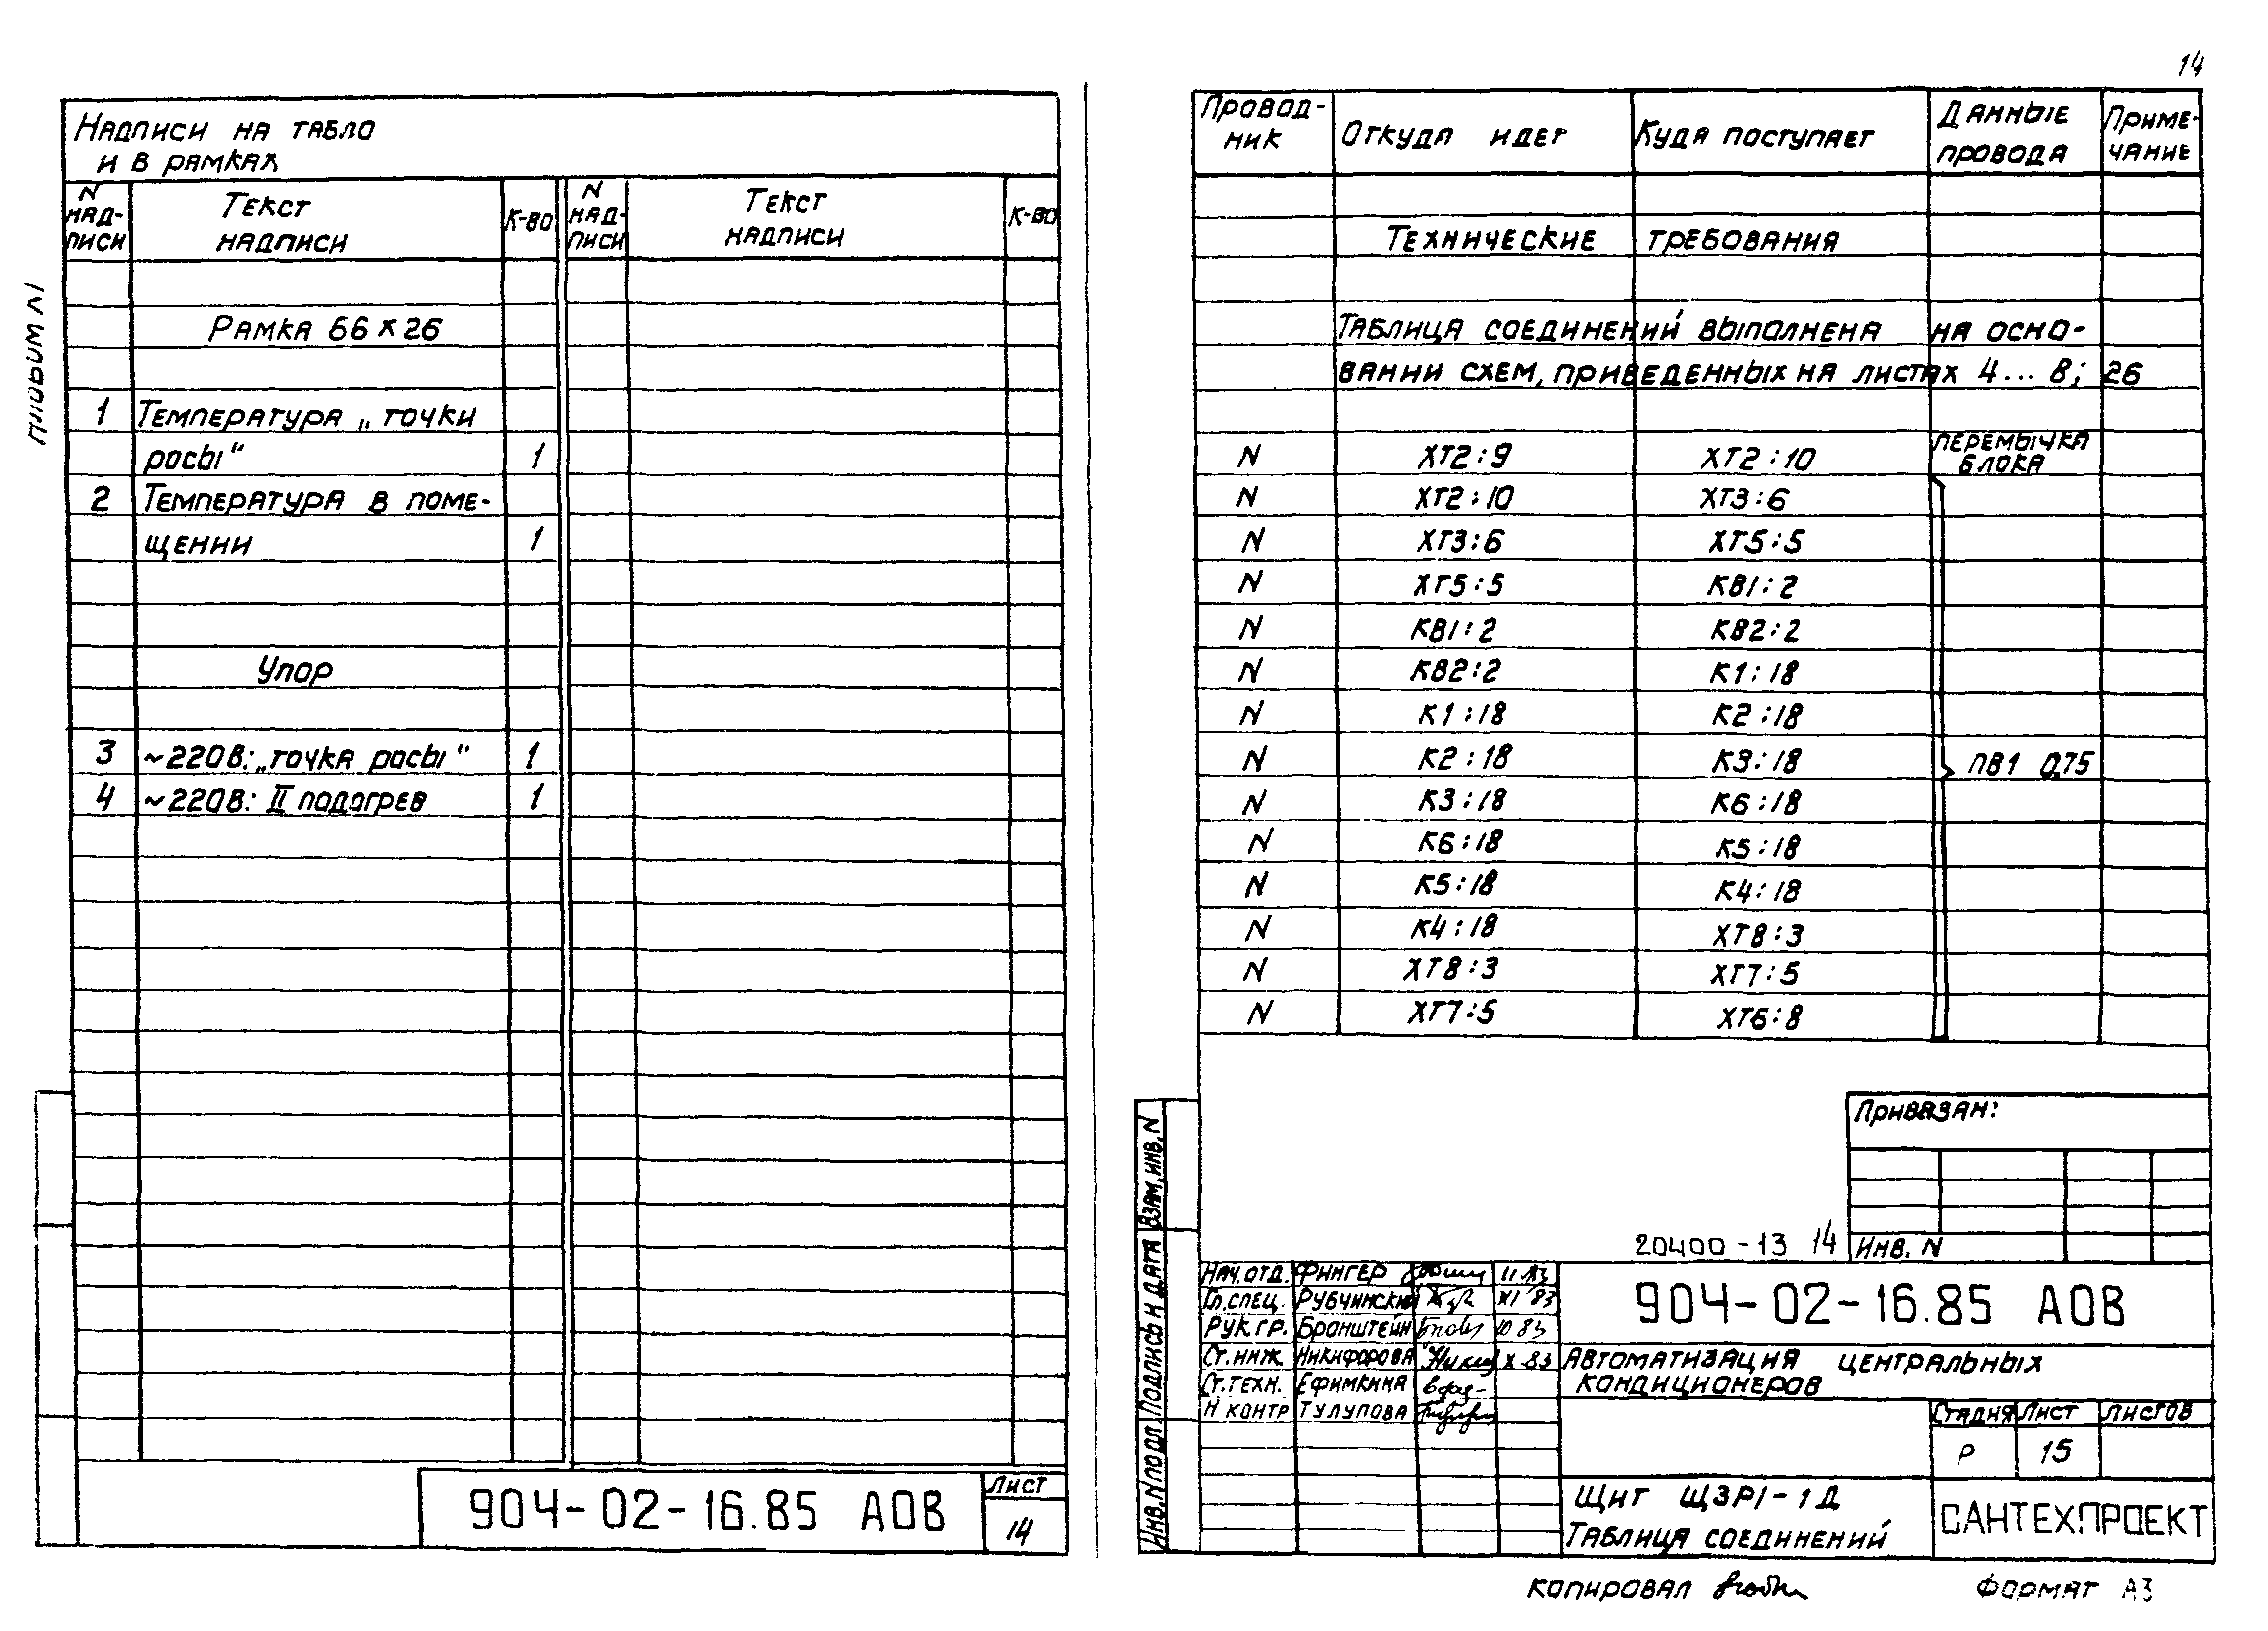 14
Альбом IV
Надписи на табло
и в рамках
N надписи Текст надписи К-во N надписи Текст надписи К-во
Рамка 66х26
1 Температура „точки
росы" 1
2 Температура в поме-
щении 1
Упор
3 ~220В: „точка росы" 1
4 ~220В: II подогрев 1
904-02-16.85 АОВ
Лист
14
Провод-
ник Откуда идет Куда поступает Данные провода Приме-
чание
Технические требования
Таблица соединений выполнена на осно-
вании схем, приведенных на листах 4...8; 26
N ХТ2:9 ХТ2:10 перемычка блока
N ХТ2:10 ХТ3:6
N ХТ3:6 ХТ5:5
N ХТ5:5 КВ1:2
N КВ1:2 КВ2:2
N КВ2:2 К1:18
N К1:18 К2:18
N К2:18 К3:18 ПВ1 0,75
N К3:18 К6:18
N К6:18 К5:18
N К5:18 К4:18
N К4:18 ХТ8:3
N ХТ8:3 ХТ7:5
N ХТ7:5 ХТ6:8
Привязан:
Инв. N
20400-13 14
Инв. N подл. Подпись и дата Взам. инв. N
Нач. отд. Фингер 11.83
Гл. спец. Рубчинский XI 83
Рук. гр. Бронштейн 10 83
Ст. инж. Никифорова X 83
Ст. техн. Ефимкина
Н контр Тулупова
904-02-16.85 АОВ
Автоматизация центральных
кондиционеров
Стадия Лист Листов
Р 15
Щит ЩЗР1-1Д
Таблица соединений
САНТЕХПРОЕКТ
Копировал
Формат А3